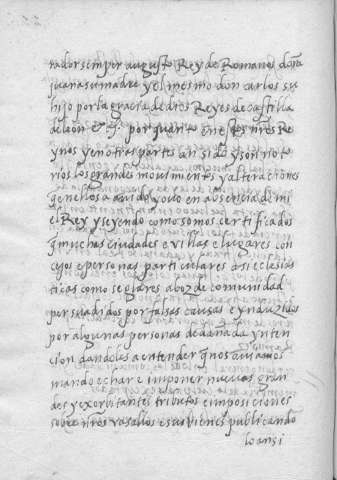 rador semper augusto Rey de Romanos doña
juana su madre y el mesmo don carlos su
hijo por la gracia de dios Reyes de castilla
de leon &c. por quanto en estos nr̃os Re
ynos y en otras partes an sido y son noto
rios los grandes movimientos y alteraciones
q̃ en ellos a avido y ovo en avsencia de mi
el Rey y seyendo como somos certificados
q̃ muchas ciudades e villas e lugares con
cejos e personas particulares asi eclesias
ticas como seglares a boz de comunidad
persuadidos por falsas causas e ynduzidos
por algunas personas de dañada ynten
cion dandoles a entender q̃ nos aviamos
mandado echar e imponer nuevos gran
des y exorbitantes tributos e imposiciones
sobre nr̃os vasallos e sus bienes publicando
lo ansi